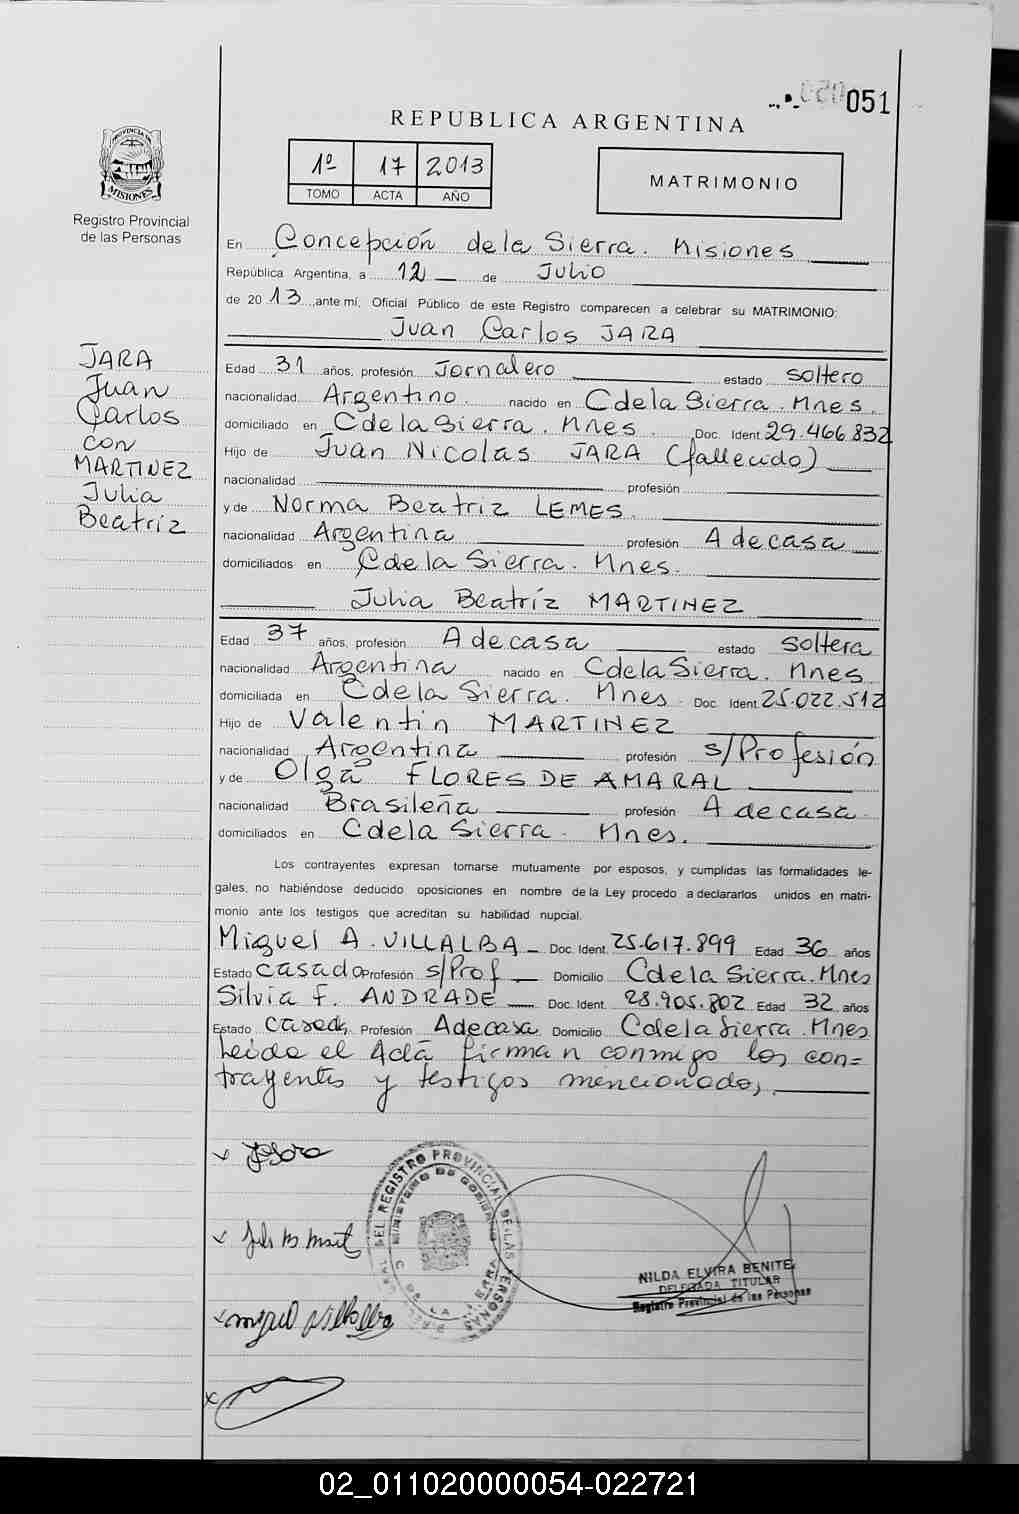 051
REPUBLICA ARGENTINA
1º 17 2013
TOMO ACTA AÑO
MATRIMONIO
PROVINCIA DE
MISIONES
Registro Provincial
de las Personas
En Concepción de la Sierra. Misiones
República Argentina, a 12 de Julio
de 2013, ante mí, Oficial Público de este Registro comparecen a celebrar su MATRIMONIO:
Juan Carlos JARA
JARA
Juan
Carlos
con
MARTINEZ
Julia
Beatriz
Edad 31 años, profesión Jornalero estado soltero
nacionalidad Argentino. nacido en C de la Sierra. Mnes.
domiciliado en C de la Sierra. Mnes. Doc. Ident. 29.466.832
Hijo de Juan Nicolas JARA (fallecido)
nacionalidad profesión
y de Norma Beatriz LEMES.
nacionalidad Argentina profesión A de casa
domiciliados en C de la Sierra. Mnes.
Julia Beatríz MARTINEZ
Edad 37 años, profesión A de casa estado soltera
nacionalidad Argentina nacido en C de la Sierra. Mnes
domiciliada en C de la Sierra. Mnes. Doc. Ident. 25.022.512
Hijo de Valentin MARTINEZ
nacionalidad Argentina profesión s/Profesión
y de Olga FLORES DE AMARAL
nacionalidad Brasileña profesión A de casa.
domiciliados en C de la Sierra. Mnes.
Los contrayentes expresan tomarse mutuamente por esposos, y cumplidas las formalidades le-
gales, no habiéndose deducido oposiciones en nombre de la Ley procedo a declararlos unidos en matri-
monio ante los testigos que acreditan su habilidad nupcial.
Miguel A. VILLALBA Doc. Ident. 25.617.899 Edad 36 años
Estado casado Profesión s/Prof Domicilio C de la Sierra. Mnes
Silvia F. ANDRADE Doc. Ident. 28.905.802 Edad 32 años
Estado casada Profesión A de casa Domicilio C de la Sierra. Mnes
Leida el Acta firman conmigo los con=
trayentes y testigos mencionados,
REGISTRO PROVINCIAL DE LAS PERSONAS
MINISTERIO DE GOBIERNO
C. DE LA SIERRA
Miguel Villalba
NILDA ELVIRA BENITE
DELEGADA TITULAR
Registro Provincial de las Personas
02_011020000054-022721